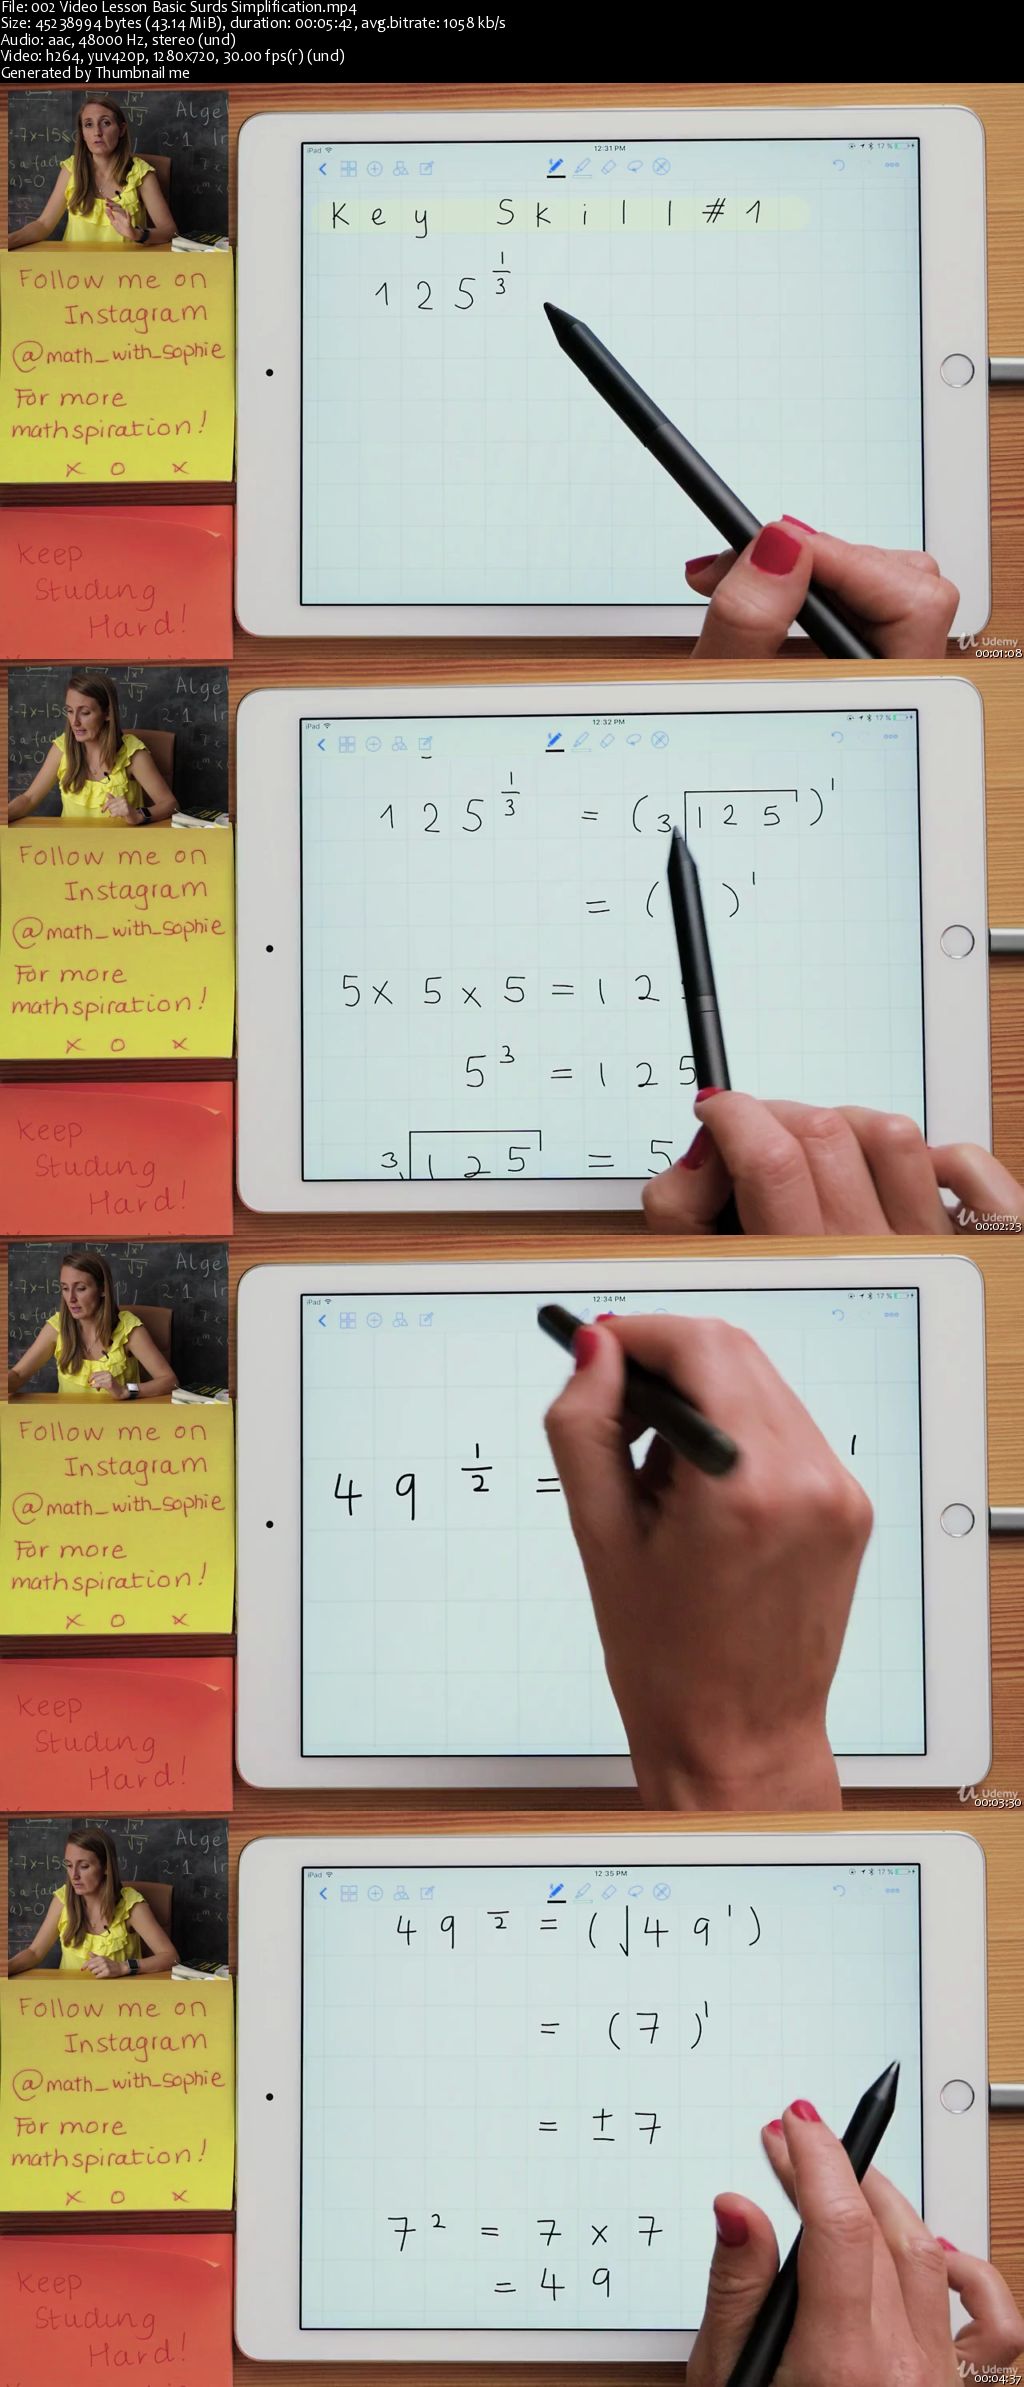 File: 002 Video Lesson Basic Surds Simplification.mp4
Size: 45238994 bytes (43.14 MiB), duration: 00:05:42, avg.bitrate: 1058 kb/s
Audio: aac, 48000 Hz, stereo (und)
Video: h264, yuv420p, 1280x720, 30.00 fps(r) (und)
Generated by Thumbnail me
Alge
-7x-15
2·1
Follow me on
Instagram
@math_with_sophie
For more
mathspiration!
x o x
Keep
Studing
Hard!
iPad
12:31 PM
17 %
Key Skill #1
125^(1/3)
Udemy
00:01:08
Alge
-7x-15
2·1
Follow me on
Instagram
@math_with_sophie
For more
mathspiration!
x o x
Keep
Studing
Hard!
iPad
12:32 PM
17 %
125^(1/3) = (3√125)^1
= ( )^1
5 x 5 x 5 = 12
5^3 = 125
3√125 = 5
Udemy
00:02:23
Alge
-7x-15
2·1
Follow me on
Instagram
@math_with_sophie
For more
mathspiration!
x o x
Keep
Studing
Hard!
iPad
12:34 PM
17 %
49^(1/2) = 1
Udemy
00:03:30
Alge
-7x-15
2·1
Follow me on
Instagram
@math_with_sophie
For more
mathspiration!
x o x
Keep
Studing
Hard!
iPad
12:35 PM
17 %
49 2 = (√49)
= (7)^1
= ± 7
7^2 = 7 x 7
= 49
Udemy
00:04:37